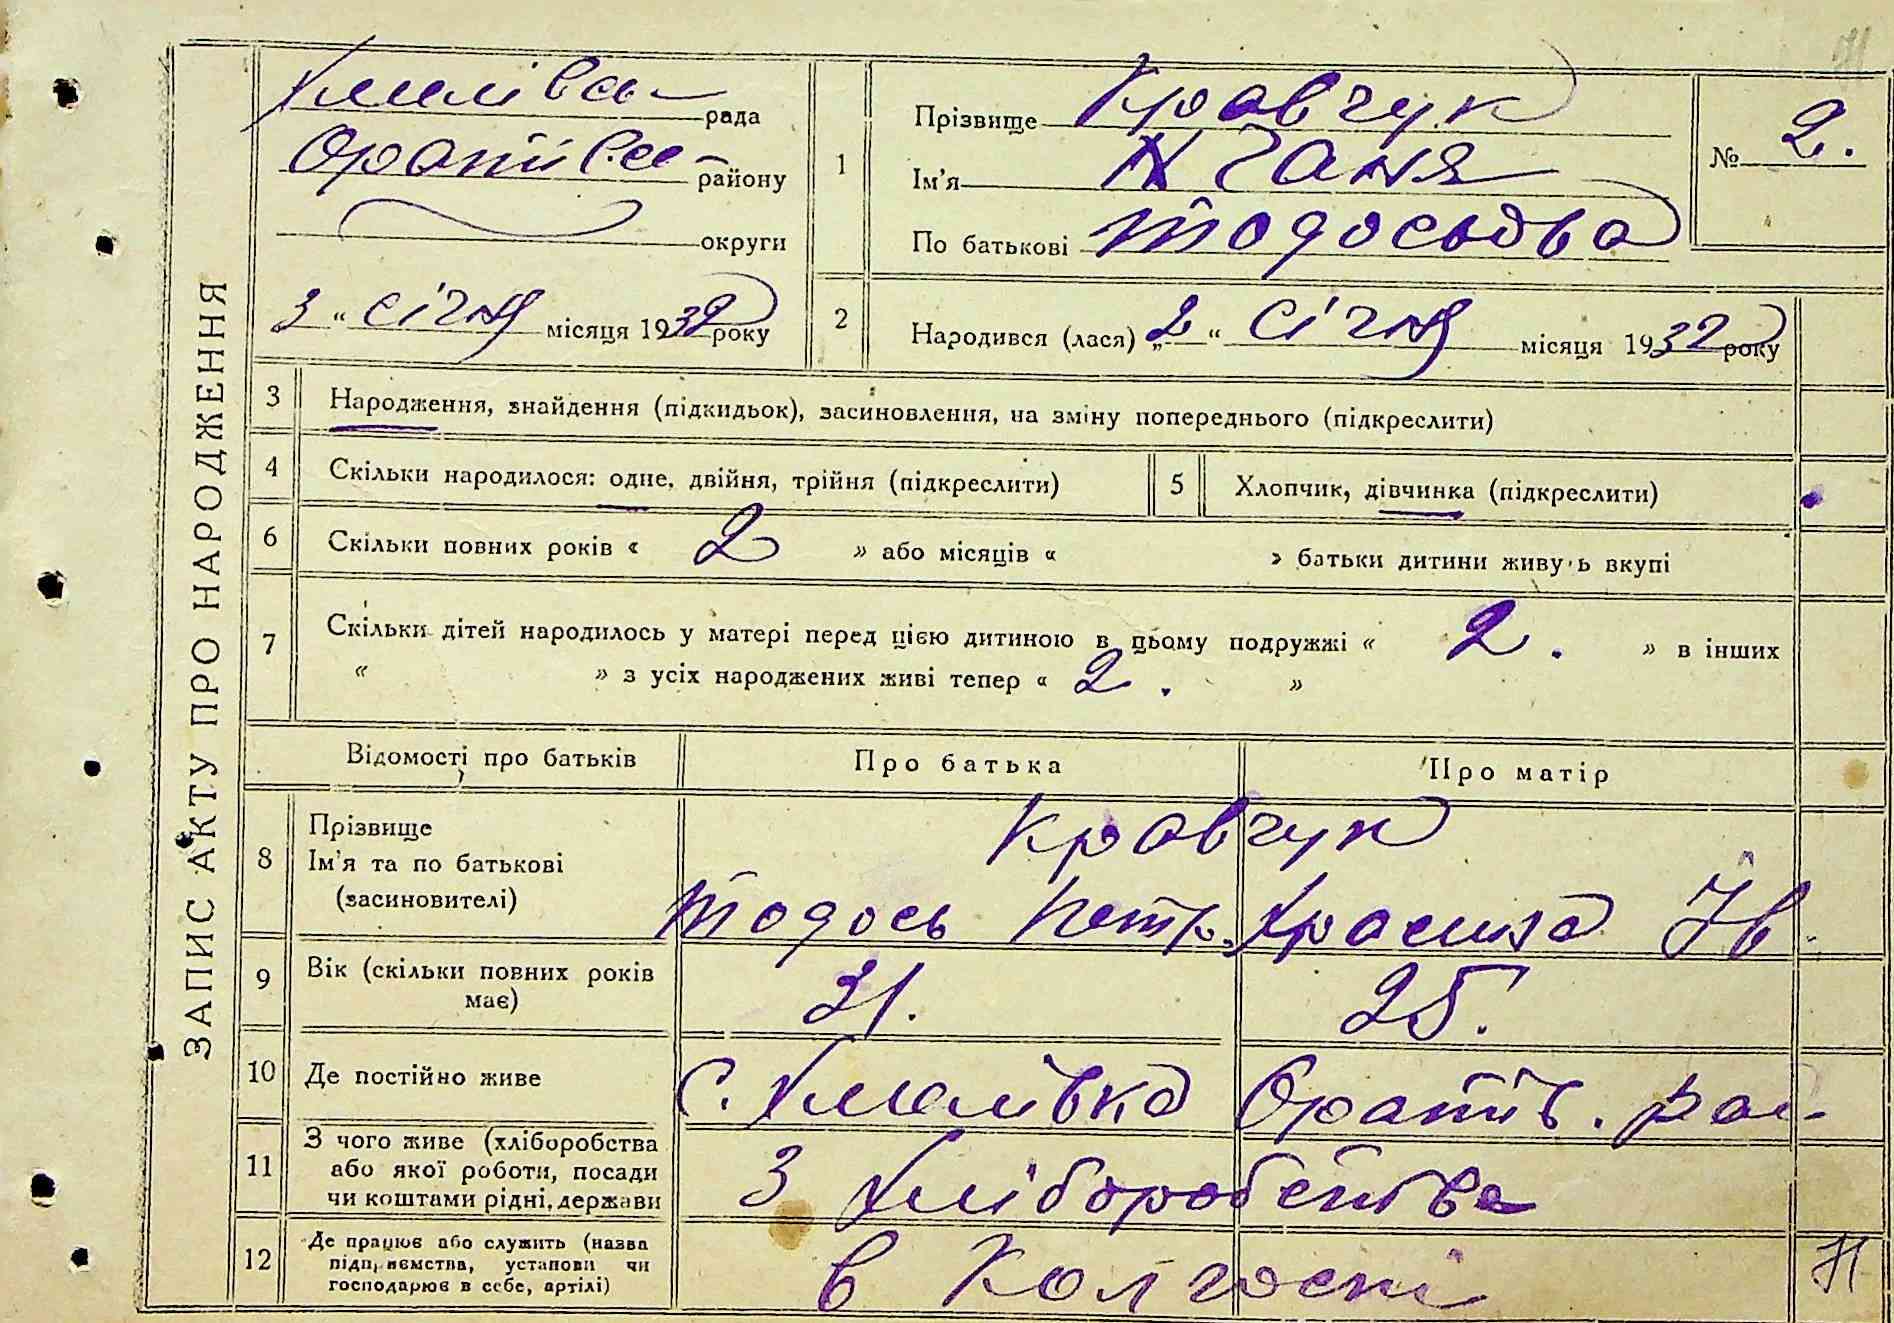 ЗАПИС АКТУ ПРО НАРОДЖЕННЯ
рада
району
округи
3 " січня місяця 1932 року
1
Прізвище Кравчук
Ім'я Ганя
По батькові Тодосьова
№ 2.
2
Народився (лася) „2" січня місяця 1932 року
3 Народження, знайдення (підкидьок), засиновлення, на зміну попереднього (підкреслити)
4 Скільки народилося: одне, двійня, трійня (підкреслити)
5 Хлопчик, дівчинка (підкреслити)
6 Скільки повних років « 2 » або місяців « » батьки дитини живуть вкупі
7 Скільки дітей народилось у матері перед цією дитиною в цьому подружжі « 2. » в інших
« » з усіх народжених живі тепер « 2. »
Відомості про батьків
Про батька
Про матір
8 Прізвище
Ім'я та по батькові
(засиновителі)
Кравчук
Тодось Петр. Ів.
9 Вік (скільки повних років
має)
31.
25.
10 Де постійно живе
с. Хмелівка Оратів. рай
11 З чого живе (хліборобства
або якої роботи, посади
чи коштами рідні, держави
З хліборобства
12 Де працює або служить (назва
підприємства, установи чи
господарює в себе, артілі)
в колгоспі